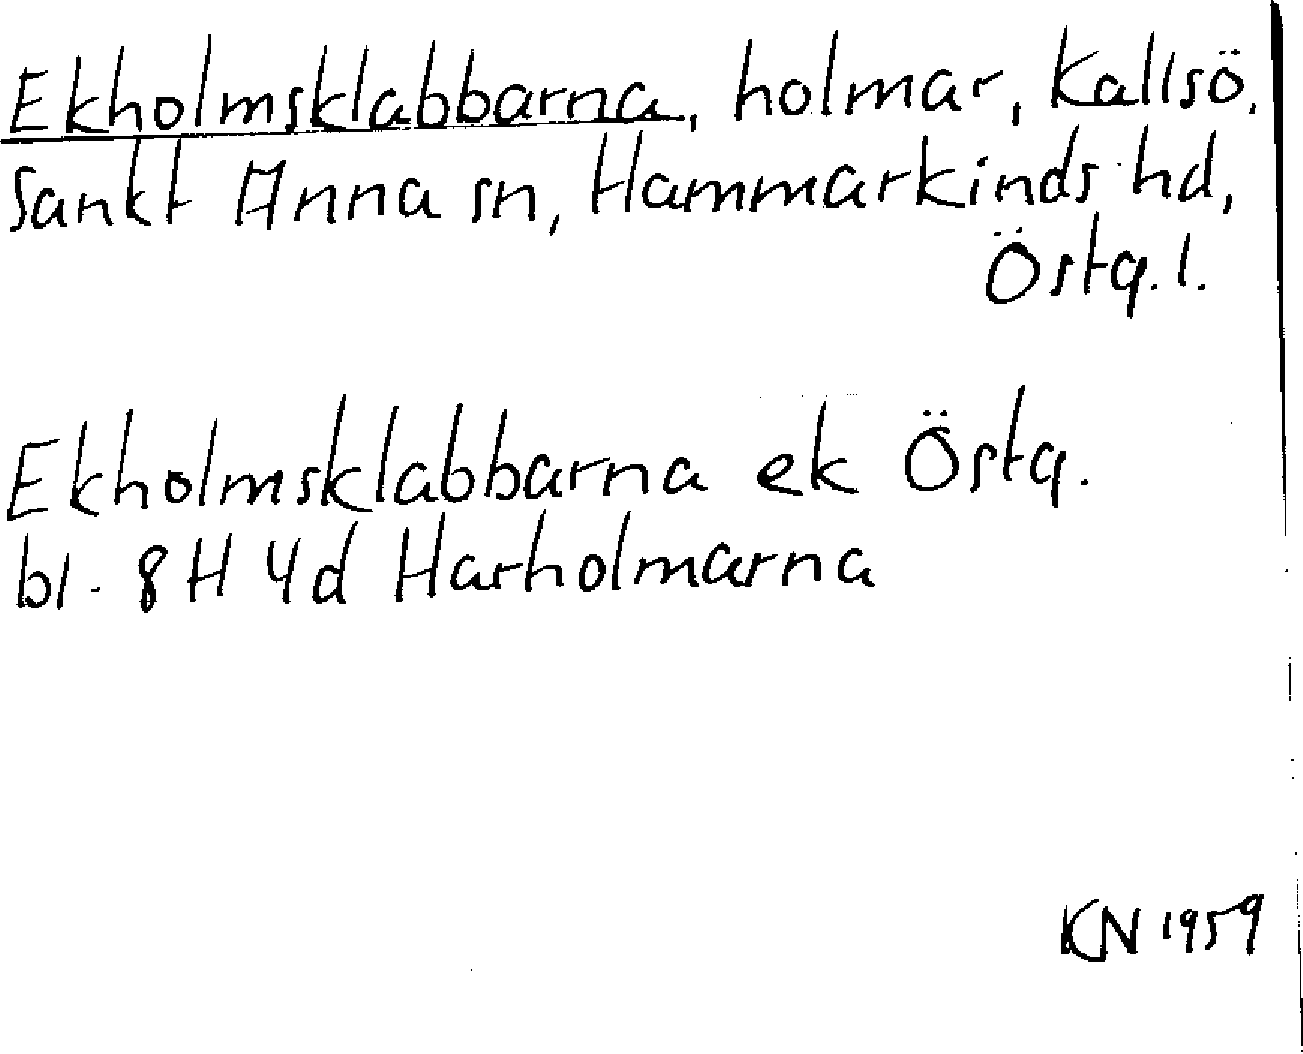 Ekholmsklabbarna, holmar, Kallsö,
Sankt Anna sn, Hammarkinds hd,
Östg. l.
Ekholmsklabbarna ek Östg.
bl. 8H 4d Harholmarna
KN 1959